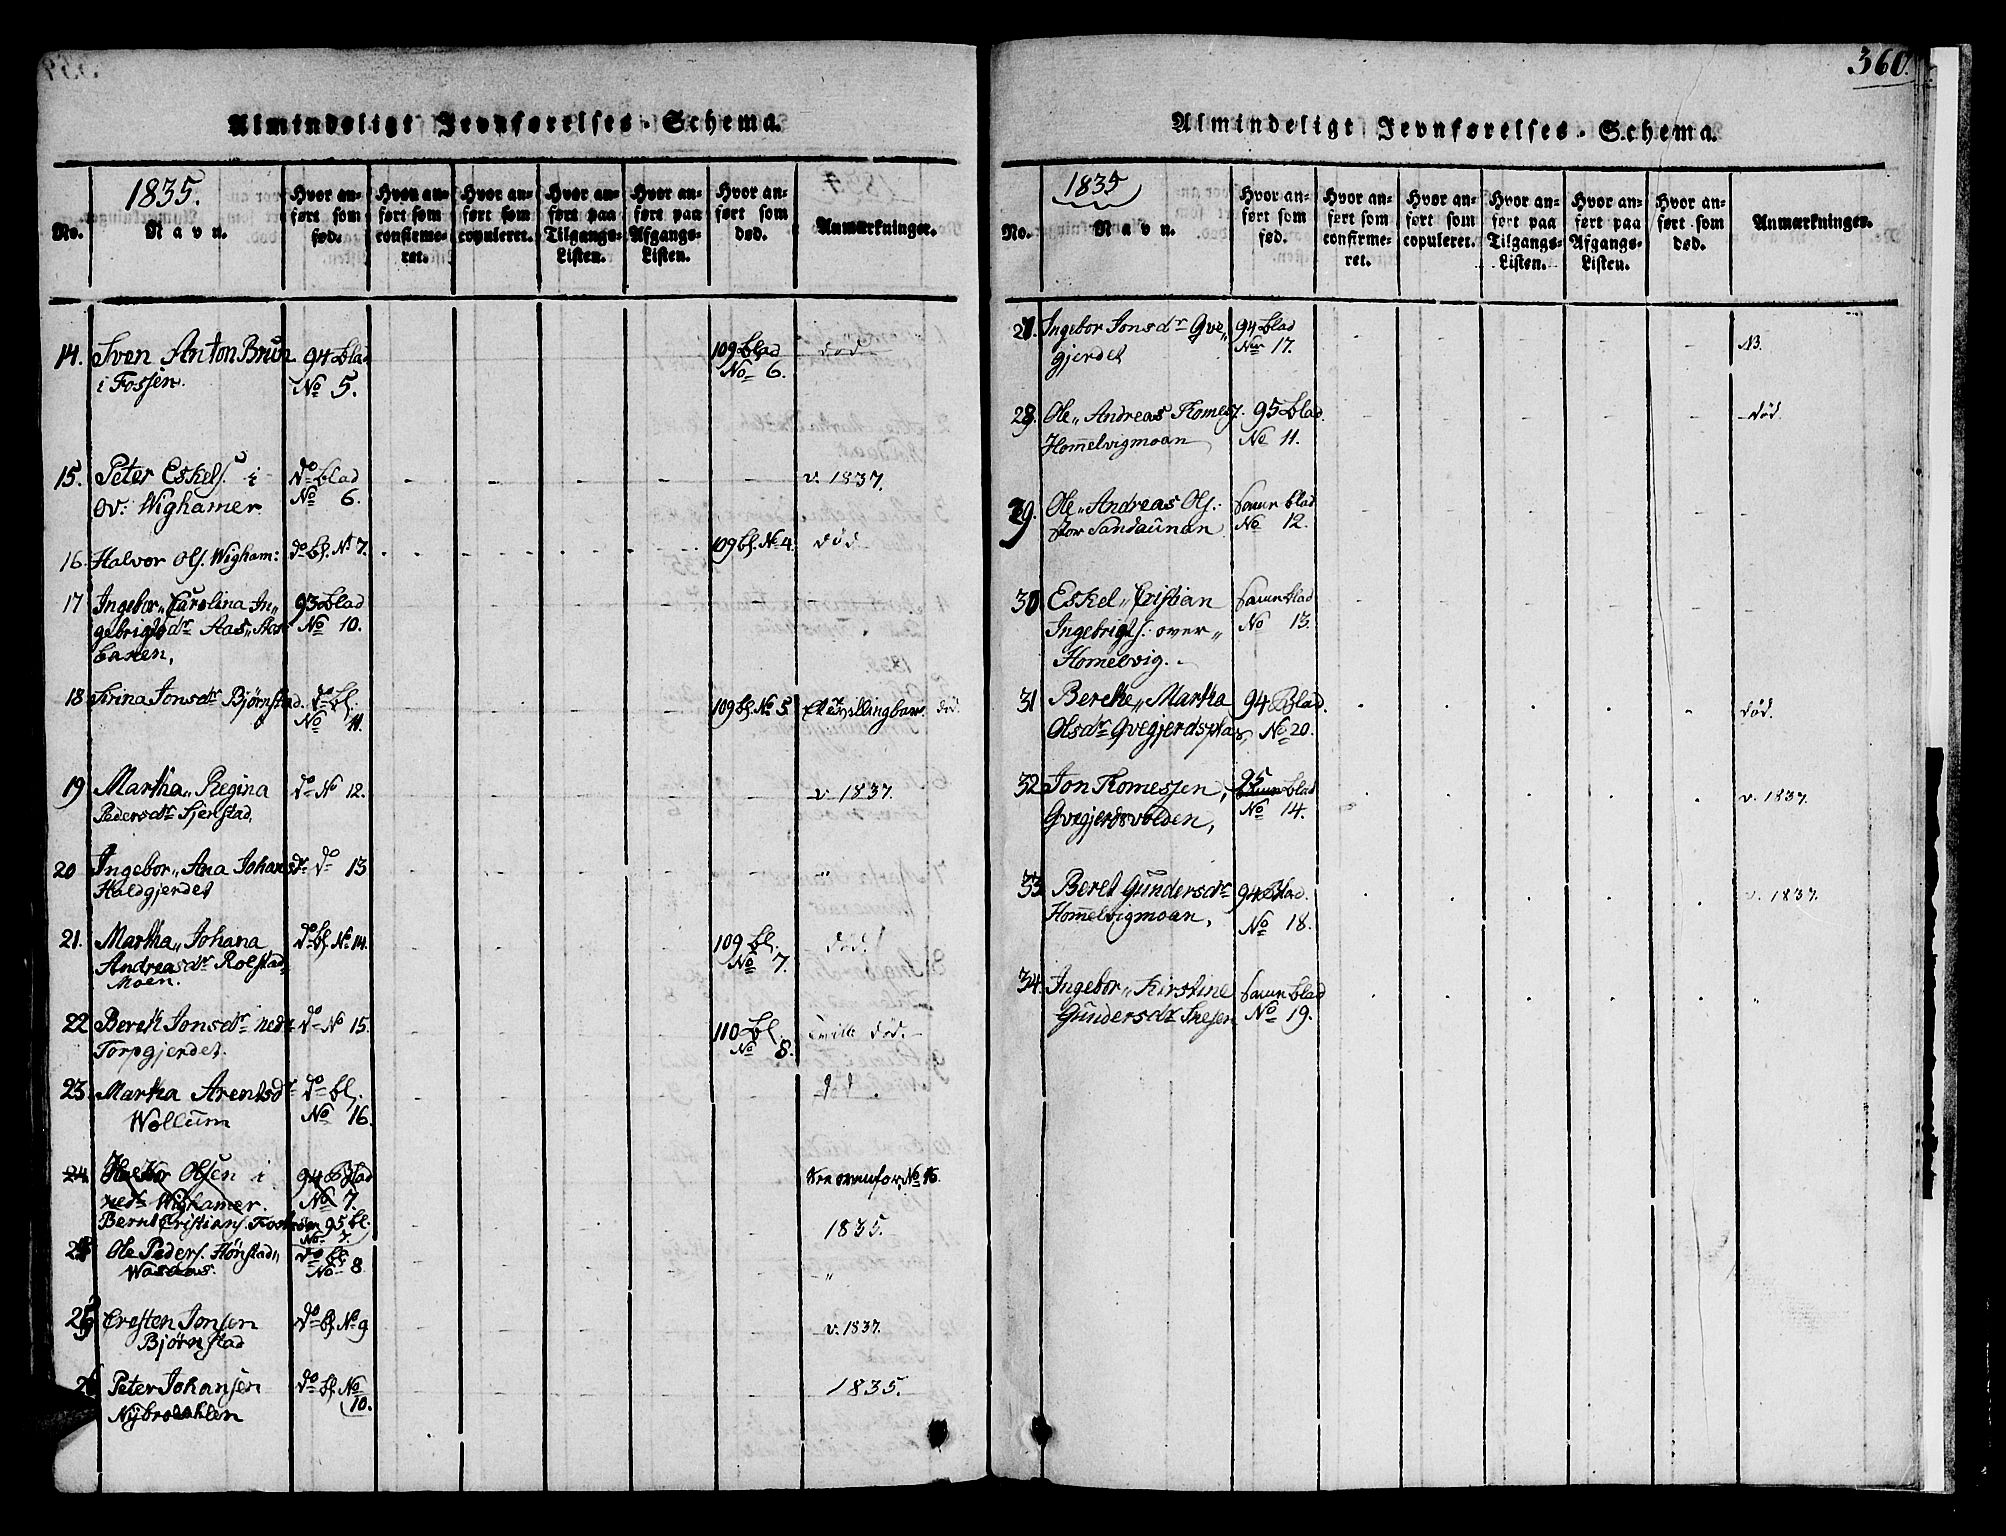 Almindeligt Jevnførelses-Schema.
1835.
No.
Navn.
Hvor anført som fød.
Hvor anført som confirmeret.
Hvor anført som copuleret.
Hvor anført paa Tilgangs-Listen.
Hvor anført paa Afgangs-Listen.
Hvor anført som død.
Anmærkninger.
14. Sven Anton Brun 94 blad 109 blad død
i Fossen. No 5. No 6.
15. Peter Eskels. i do blad v. 1837.
ov: Wighamer No 6.
16. Halvor Ols. Wigham: do bl. No 7. 109 bl. No 4. død
17 Ingebor„ Carolina In„ 93 blad
gebrigtsdr Aas„ Aas No 10.
18 Trina Jonsdr Bjørnstad. do bl. 109 bl. No 5. Tvillingbarn død.
No 11.
19 Martha„ Regina do No 12. v. 1837.
Pedersdr
20 Ingebor„ Ana Johansdr do 13 "
Haldgjerdet
21. Martha„ Johana do bl. No 14. 109 bl. død
Andreasdr Rolstad No 7.
Moen.
22 Beret Jonsdr ned: do No 15. 110 bl. død.
Torpgjerdet. No 8.
23. Martha Arentsdr do bl.
Wollum No 16.
24. Olsen i 94 Blad See ovenfor No 16.
nedr Wighamer. No 7.
Bernt Cristians. 95 bl. 1835.
No 7.
24 Ole Peders. Hønstad„ do bl. "
No 8
25 Cresten Jonsen do bl. No 9 v. 1837.
Bjørnstad
26 Peter Johansen do bl. No 1835.
10.
360.
Almindeligt Jevnførelses-Schema.
1835
No.
Navn.
Hvor anført som fød.
Hvor anført som confirmeret.
Hvor anført som copuleret.
Hvor anført paa Tilgangs-Listen.
Hvor anført paa Afgangs-Listen.
Hvor anført som død.
Anmærkninger.
27. Ingebor Jonsdr Gve„ 94 blad NB.
gjerdet No 17.
28. Ole„ Andreas Tomes. 95 blad død.
Hommelvigmoan No 11.
29. Ole„ Andreas Ols. samr blad
stor Sandaunan No 12.
30 Eskel„ Cristian samr blad
Ingebrigts. over„ No 13.
Homelvig.
31 Berethe„ Martha 94 Blad. død.
Olsdr Gvegjerdsplas, No 20.
32 Jon Tomessen, 95 blad v. 1837.
Gvegjerdsvolden, No 14.
33 Beret Gundersdr 94 Blad. v. 1837.
Hommelvigmoan, No 18.
34. Ingebor„ Kirstine samr blad "
Gundersdr No 19.